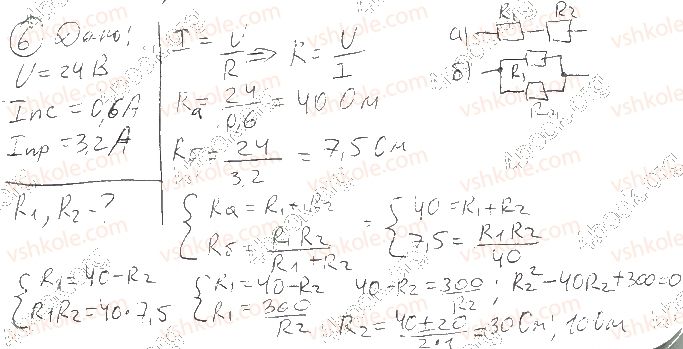 6 Дано:
U = 24 В
Iпс = 0,6 А
Iпр = 3,2 А
R1, R2 - ?
I = U/R => R = U/I
Rа = 24/0,6 = 40 Ом
Rб = 24/3,2 = 7,5 Ом
а) R1 R2
б) R1
R2
{ Rа = R1 + R2
Rб = R1R2/(R1 + R2)
= { 40 = R1 + R2
7,5 = R1R2/40
{ R1 = 40 - R2
R1R2 = 40 · 7,5
{ R1 = 40 - R2
R1 = 300/R2
40 - R2 = 300/R2 ; R2² - 40R2 + 300 = 0
R2 = (40 ± 20)/(2·1) = 30 Ом; 10 Ом
vshkole.com